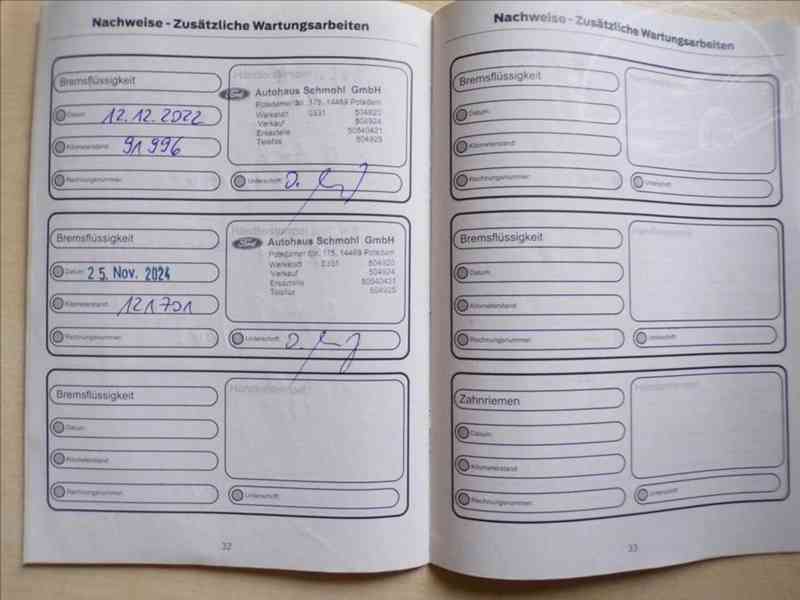 Nachweise - Zusätzliche Wartungsarbeiten
Bremsflüssigkeit
Händlerstempel
Datum: 12.12.2022
Kilometerstand: 91 996
Rechnungsnummer:
Ford
Autohaus Schmohl GmbH
Potsdamer Str. 175, 14469 Potsdam
Werkstatt 0331 504920
Verkauf 504924
Ersatzteile 50540421
Telefax 504925
Unterschrift:
Bremsflüssigkeit
Händlerstempel
Datum: 25. Nov. 2024
Kilometerstand: 121701
Rechnungsnummer:
Ford
Autohaus Schmohl GmbH
Potsdamer Str. 175, 14469 Potsdam
Werkstatt 0331 504920
Verkauf 504924
Ersatzteile 50540421
Telefax 504925
Unterschrift:
Bremsflüssigkeit
Händlerstempel
Datum:
Kilometerstand:
Rechnungsnummer:
Unterschrift:
32
Nachweise - Zusätzliche Wartungsarbeiten
Bremsflüssigkeit
Händlerstempel
Datum:
Kilometerstand:
Rechnungsnummer:
Unterschrift:
Bremsflüssigkeit
Händlerstempel
Datum:
Kilometerstand:
Rechnungsnummer:
Unterschrift:
Zahnriemen
Händlerstempel
Datum:
Kilometerstand:
Rechnungsnummer:
Unterschrift:
33